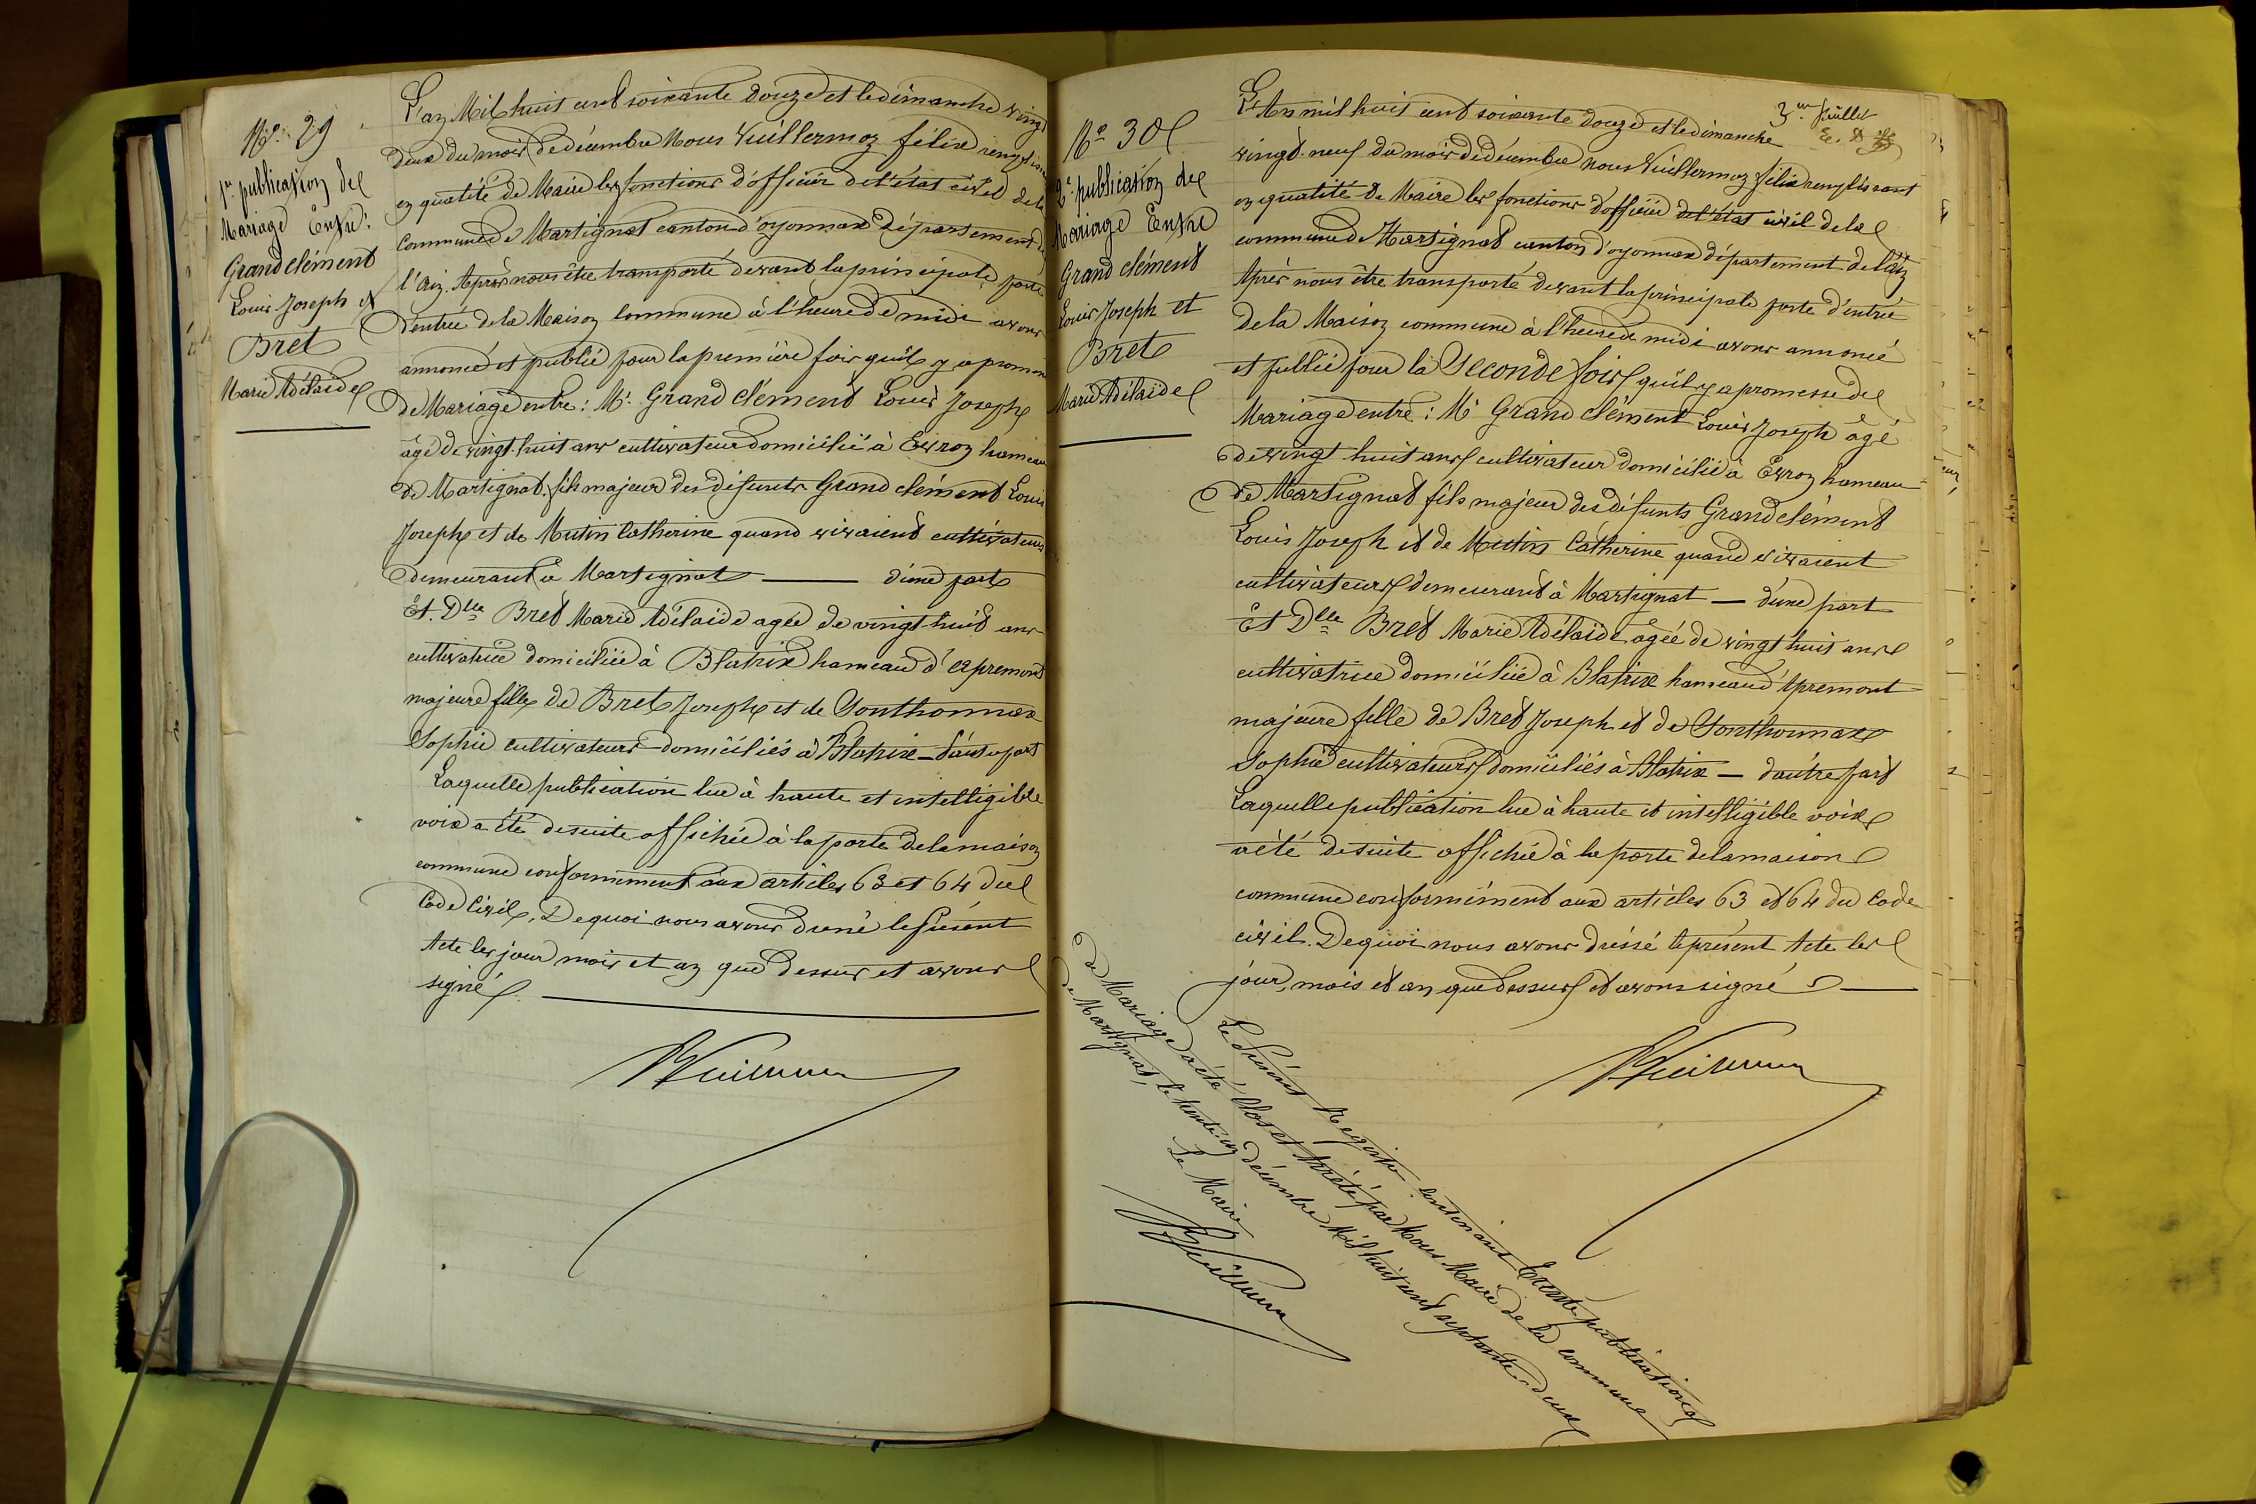 No. 29
1re publication de
Mariage Entre:
Grandclément
Louis Joseph et
Bret
Marie Adélaïde
L'an Mil huit cent soixante douze et le dimanche vingt
deux du mois de décembre Nous Vuillermoz félix remplissant
en qualité de Maire les fonctions d'officier de l'état civil de la
Commune de Martignat canton d'oyonnax département de
l'Ain. Après nous être transporté devant la principale porte
d'entrée de la Maison Commune à l'heure de midi avons
annoncé et publié pour la première fois qu'il y a promesse
de Mariage entre: Mr Grandclément Louis Joseph
âgé de vingt-huit ans cultivateur domicilié à Evron hameau
de Martignat, fils majeur des défunts Grandclément Louis
Joseph et de Mutin Catherine quand vivaient cultivateurs
demeurant à Martignat — d'une part
Et. Dlle Bret Marie Adélaïde agée de vingt-huit ans
cultivatrice domiciliée à Blatrix hameau d'apremont
majeure fille de Bret Joseph et de Sonthonnax
Sophie cultivateurs domiciliés à Blatrix — d'autre part
Laquelle publication lue à haute et intelligible
voix a été desuite affichée à la porte de la maison
commune conformément aux articles 63 et 64 du
Code Civil. De quoi nous avons dressé le présent
Acte les jour mois et an que dessus et avons
signé.
No 30
2e publication de
Mariage Entre
Grandclément
Louis Joseph et
Bret
Marie Adélaïde
3me feuillet
L'An mil huit cent soixante douze et le dimanche
vingt-neuf du mois de décembre nous Vuillermoz félix remplissant
en qualité de Maire les fonctions d'officier de l'état civil de la
commune de Martignat canton d'oyonnax département de l'ain
Après nous être transporté devant la principale porte d'entrée
de la Maison commune à l'heure de midi avons annoncé
et publié pour la seconde fois qu'il y a promesse de
Mariage entre: Mr Grandclément Louis Joseph âgé
de vingt-huit ans cultivateur domicilié à Evron hameau
de Martignat fils majeur des défunts Grandclément
Louis Joseph et de Mutin Catherine quand vivaient
cultivateurs demeurant à Martignat — d'une part
Et Dlle Bret Marie Adélaïde agée de vingt huit ans
cultivatrice domiciliée à Blatrix hameau d'Apremont
majeure fille de Bret Joseph et de Sonthonnax
Sophie cultivateurs domiciliés à Blatrix — d'autre part
Laquelle publication lue à haute et intelligible voix
a été desuite affichée à la porte de la maison
commune conformément aux articles 63 et 64 du Code
civil. De quoi nous avons dressé le présent Acte les
jour, mois et an que dessus et avons signé
Le présent Registre contenant trente publications
de Mariage a été clos et Arrêté par Nous Maire de la commune
de Martignat, le trente-un décembre Mil huit cent septante-deux
Le Maire